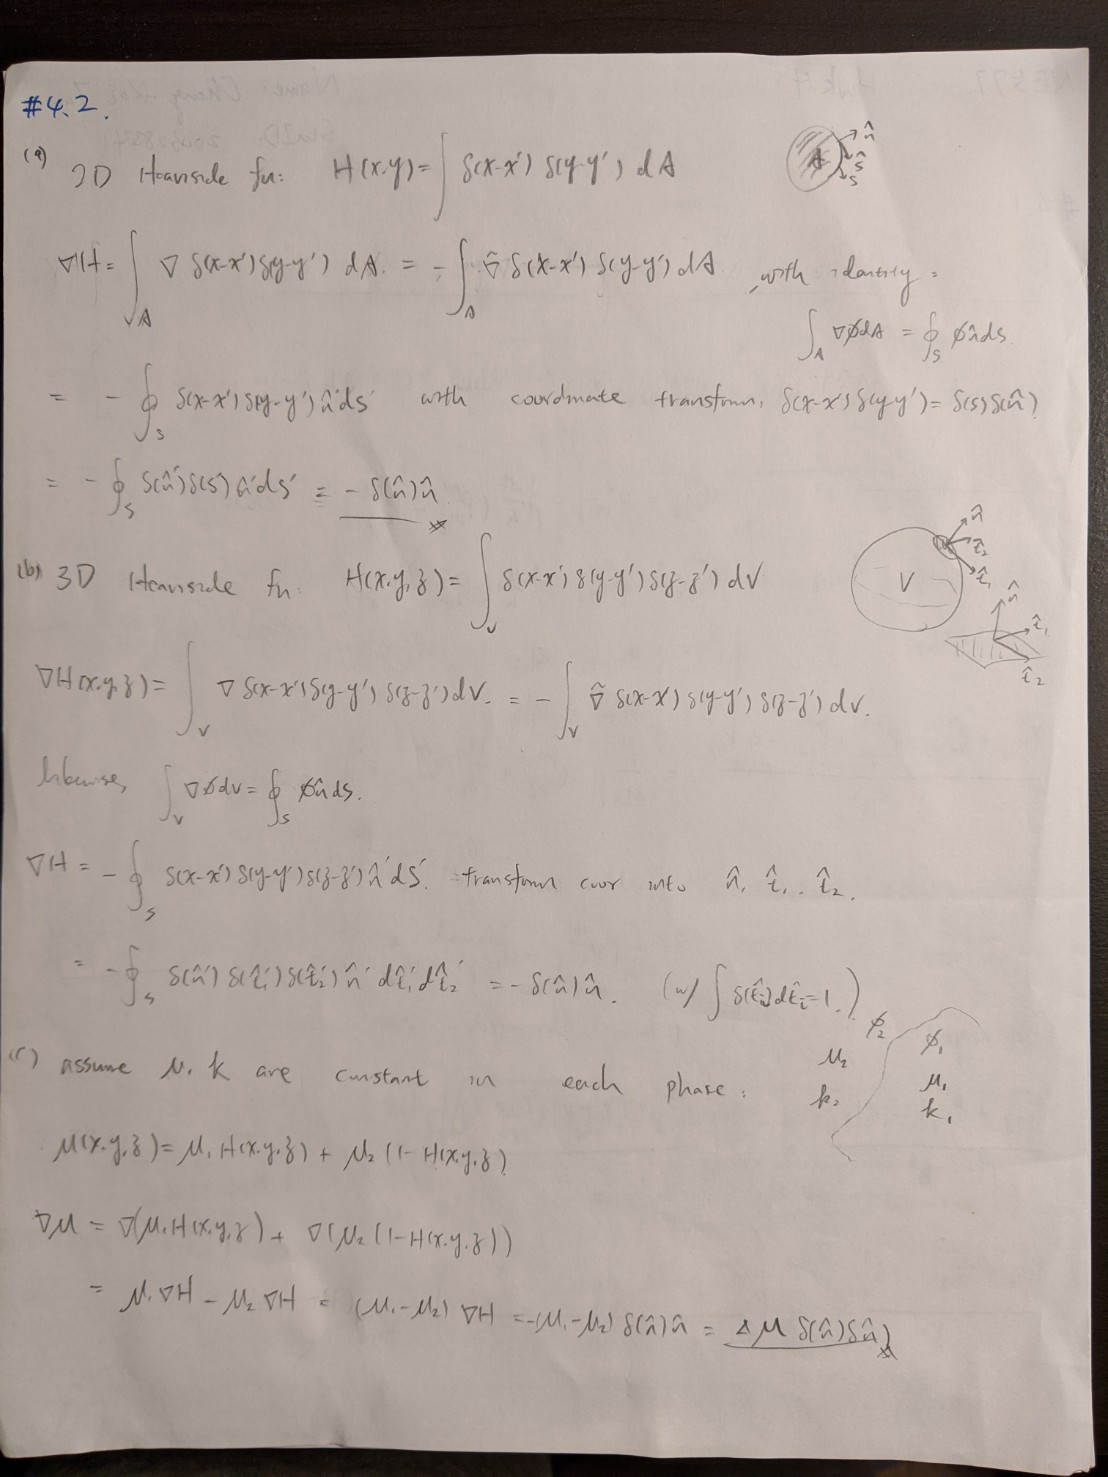 #4.2.
(a) 2D Heaviside fn: H(x,y) = ∫ δ(x-x') δ(y-y') dA
A n̂ ŝ s
∇H = ∫_A ∇ δ(x-x') δ(y-y') dA. = - ∫_A ∇̃ δ(x-x') δ(y-y') dA, with identity:
∫_A ∇φdA = ∮_S φn̂ds.
= - ∮_S δ(x-x') δ(y-y') n̂'ds' with coordinate transform, δ(x-x') δ(y-y') = δ(s) δ(n̂)
= - ∮_S δ(n̂') δ(s') n̂'ds' = - δ(n̂)n̂
(b) 3D Heaviside fn. H(x,y,z) = ∫_V δ(x-x') δ(y-y') δ(z-z') dV
V n̂ t̂₂ t̂₁
n̂ t̂₁ t̂₂
∇H(x,y,z) = ∫_V ∇ δ(x-x') δ(y-y') δ(z-z') dV. = - ∫_V ∇̃ δ(x-x') δ(y-y') δ(z-z') dV.
likewise, ∫_V ∇φdV = ∮_S φn̂ds.
∇H = - ∮_S δ(x-x') δ(y-y') δ(z-z') n̂'ds'. transform coor into n̂, t̂₁, t̂₂.
= - ∮_S δ(n̂') δ(t̂₁') δ(t̂₂') n̂' dt̂₁' dt̂₂' = - δ(n̂)n̂. (w/ ∫ δ(t̂ᵢ)dt̂ᵢ = 1.)
(c) assume μ, k are constant in each phase:
φ₂ μ₂ k₂ φ₁ μ₁ k₁
μ(x,y,z) = μ₁ H(x,y,z) + μ₂ (1-H(x,y,z))
∇μ = ∇(μ₁H(x,y,z)) + ∇(μ₂(1-H(x,y,z)))
= μ₁∇H - μ₂∇H = (μ₁-μ₂) ∇H = -(μ₁-μ₂) δ(n̂)n̂ = Δμ δ(n̂)δn̂)